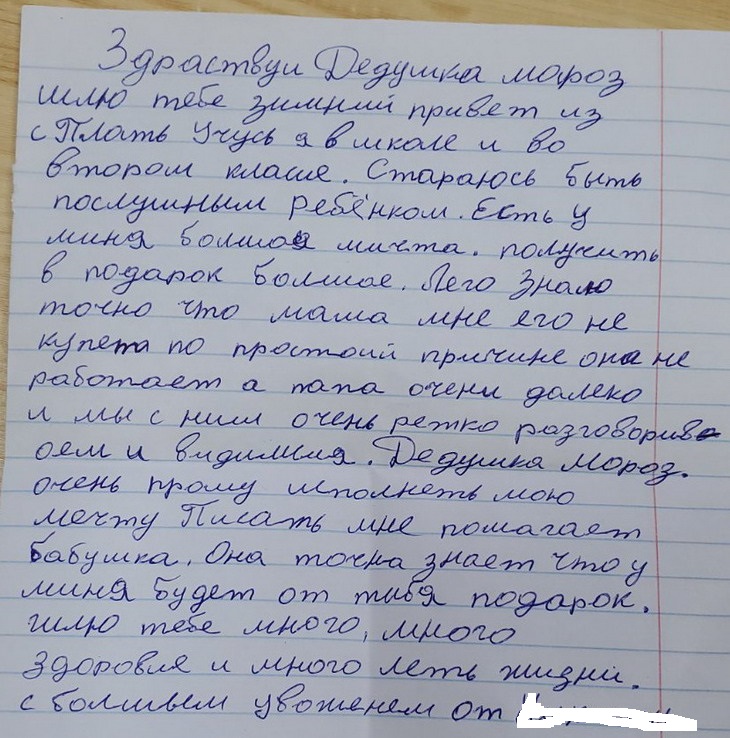 Здраствуи Дедушка мороз
шлю тебе зимний привет из
с Плать Учусь я в школе и во
втором класе. Стараюсь быть
послушным ребёнком. Есть у
миня болшоя мичта. получить
в подарок болшое. Лего Знаю
точно что мама мне его не
купета по простоий причине она не
работает а папа очени далеко
и мы с ним очень режко разговорива
оем и видимися. Дедушка Мороз.
очень прошу исполнеть мою
мечту Писать мне помагает
бабушка. Она точна знает что у
миня будет от тибя подарок.
шлю тебе много, много
здоровие и много леть жизни.
с болшьем уваженем от